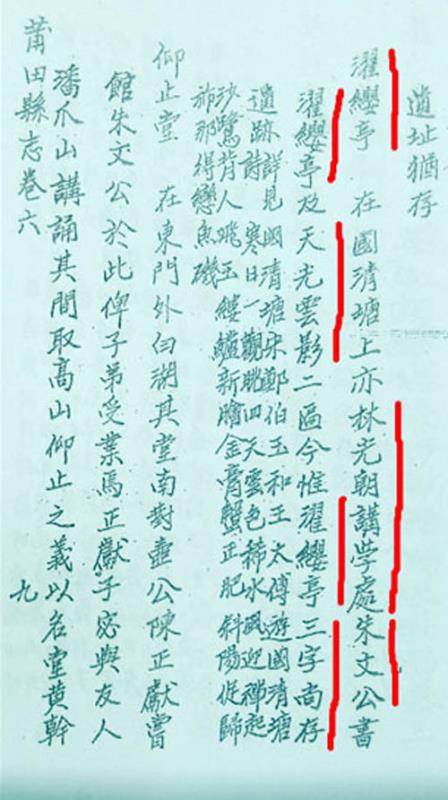 遺址猶存
濯纓亭 在國清塘上亦林光朝講學處朱文公書
濯纓亭及天光雲影二區今惟濯纓亭三字尚存
遺跡詳見國清塘宋鄭伯玉和王太傅遊國清塘
詩寒日一觀眺四天雲色稀水風迎禪起
沙鷺背人飛玉縷鱸新膾金膏蟹正肥斜陽從歸
旆那得戀魚磯
仰止堂 在東門外白湖其堂南對壺公陳正獻嘗
館朱文公於此俾子弟受業焉正獻子宓與友人
潘爪山講誦其間取高山仰止之義以名堂黄幹
莆田縣志卷六 九